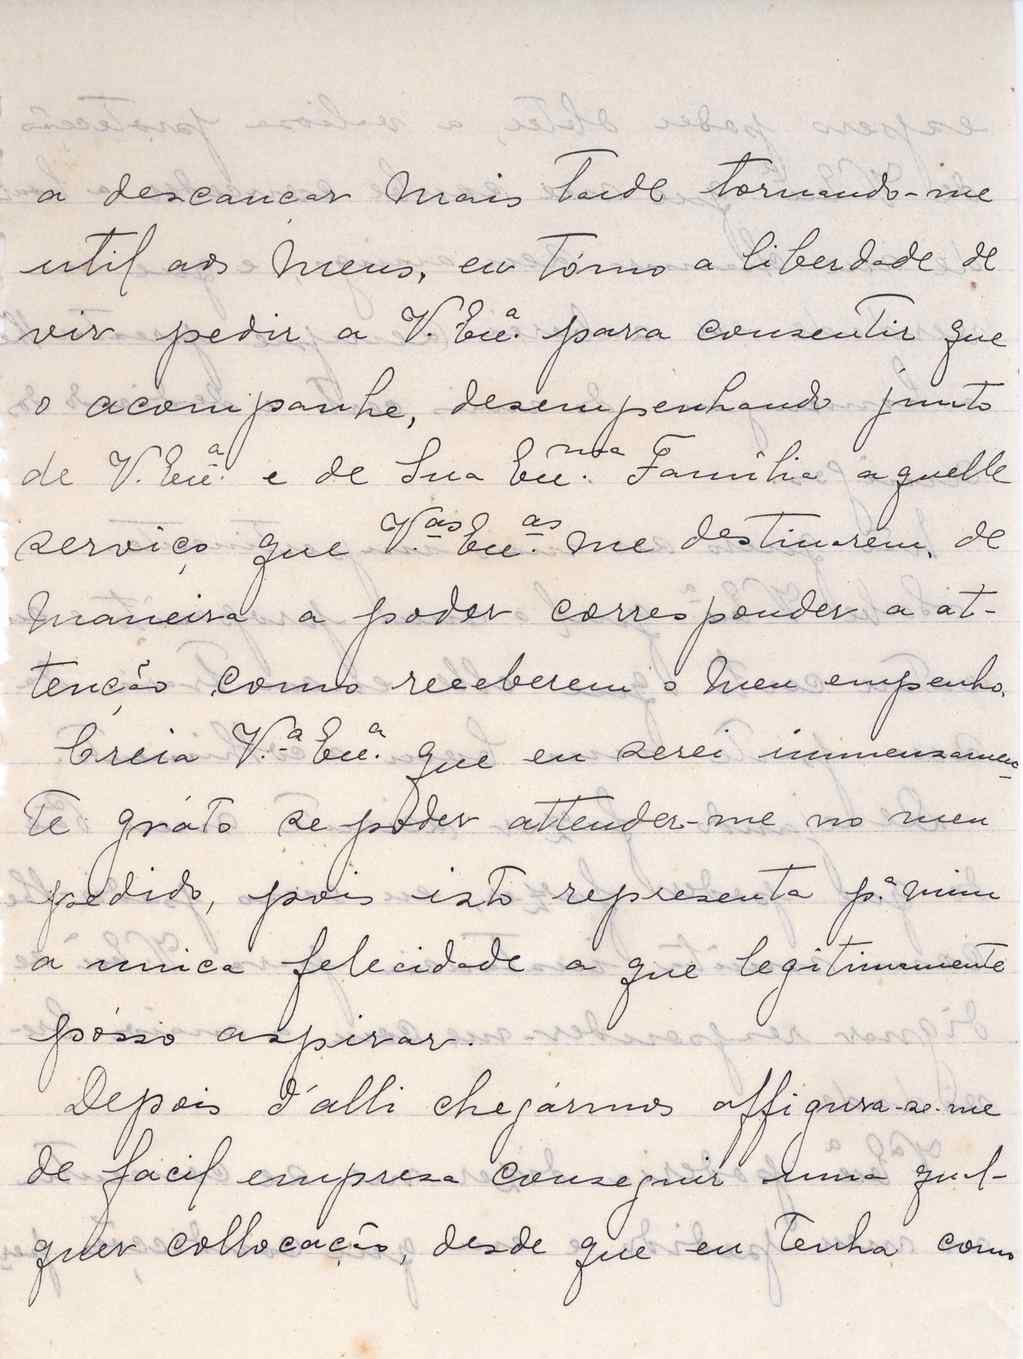 a descançar mais tarde tornando-me
util aos meus, eu tómo a liberdade de
vir pedir a V. Exc.ª para consentir que
o acompanhe, desempenhando junto
de V. Exc.ª e de Sua Exc.ma Familia aquelle
serviço que V.as Exc.as me destinarem, de
maneira a poder corresponder a at-
tenção como receberem o meu empenho.
Creia V.ª Exc.ª que eu serei immensamen-
te gráto se poder attender-me no meu
pedido, pois isto representa p.ª mim
a unica felecidade a que legitimamente
pósso aspirar.
Depois d'alli chegármos affigura-se-me
de facil empresa conseguir uma qual-
quer collocação, desde que eu tenha como